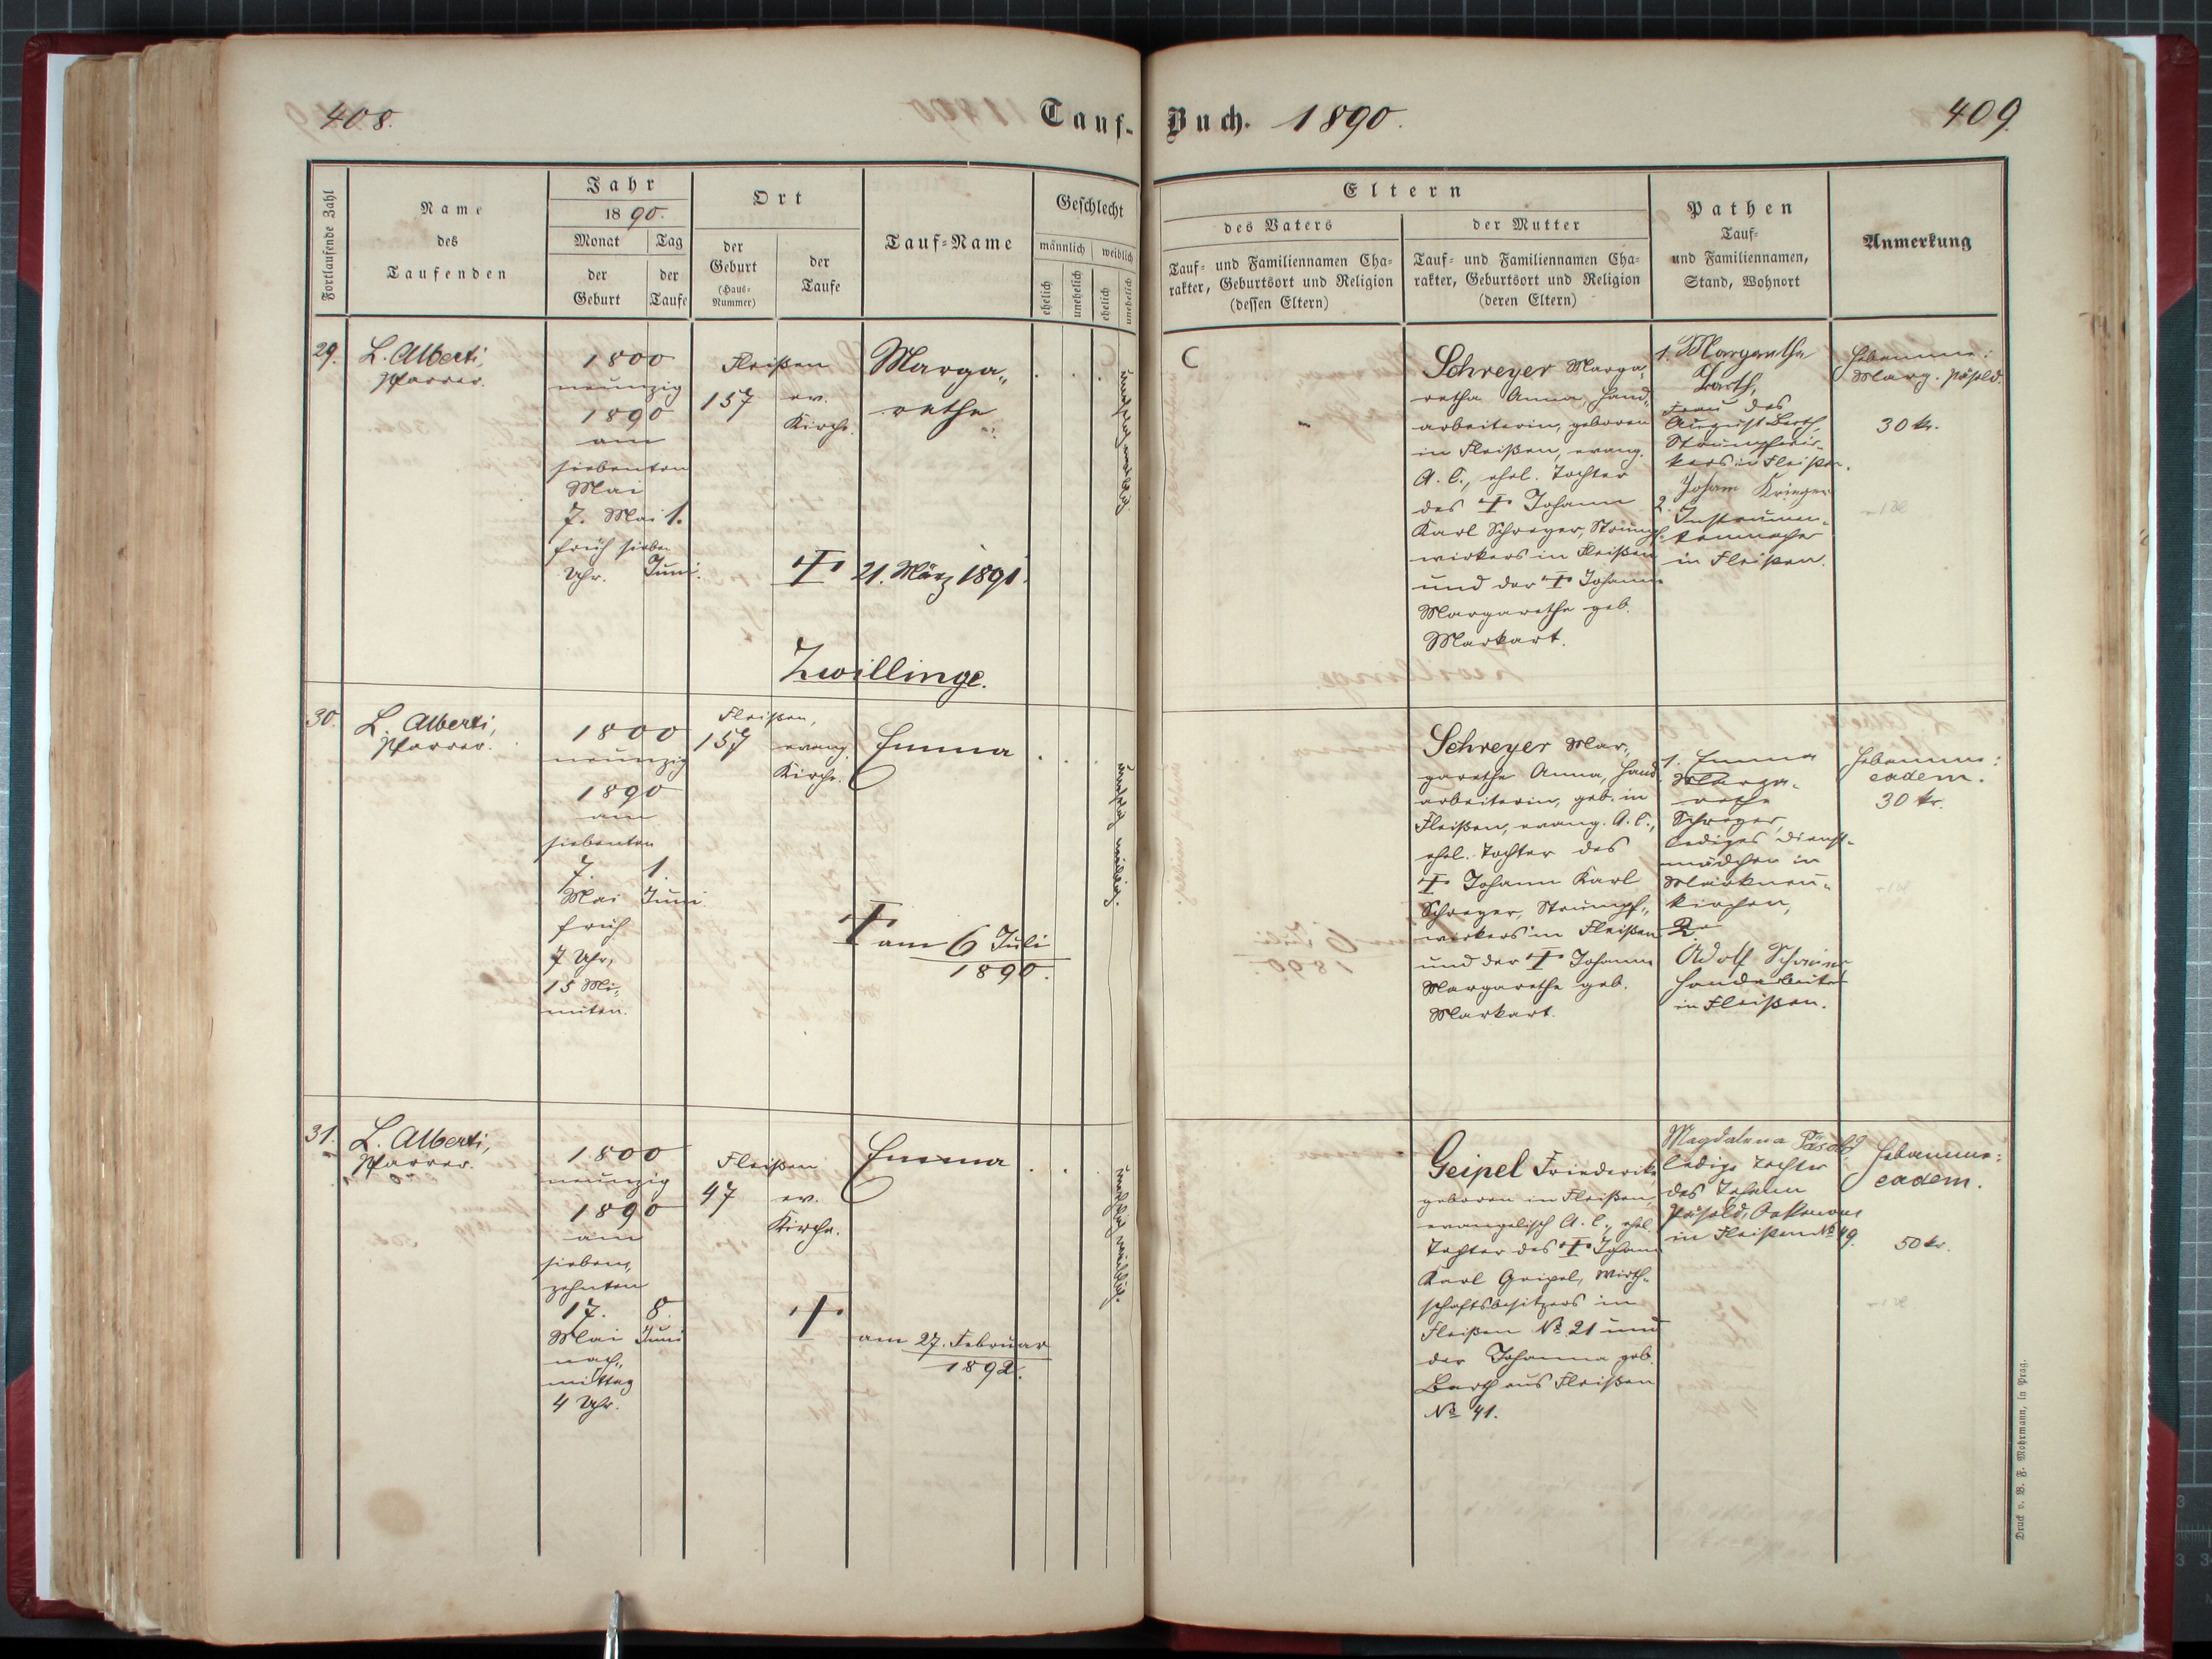 408.
Tauf-
Fortlaufende Zahl
Name
des
Taufenden
Jahr
1890.
Monat
der
Geburt
Tag
der
Taufe
Ort
der
Geburt
(Haus-
Nummer)
der
Taufe
Tauf-Name
Geschlecht
männlich
weiblich
ehelich
unehelich
ehelich
unehelich
29.
L. Alberti,
Pfarrer.
1800
neunzig
1890
am
siebenten
Mai
7. Mai 1.
früh sieben
Uhr. Juni.
Fleißen
157 ev.
Kirche.
Marga„
rethe
✝ 21. März 1891.
Zwillinge.
30.
L. Alberti,
Pfarrer.
1800
neunzig
1890
am
siebenten
7. 1.
Mai Juni
früh
7 Uhr,
15 Mi„
nuten.
Fleißen,
157 evang.
Kirche.
Emma
✝ am 6 Juli
1890.
31.
L. Alberti,
Pfarrer.
1800
neunzig
1890
am
sieben„
zehnten
17. 8.
Mai Juni
nach„
mittag
4 Uhr.
Fleißen
47 ev.
Kirche.
Emma
✝
am 27. Februar
1892.
Buch. 1890.
409.
Eltern
des Vaters
Tauf- und Familiennamen Cha-
rakter, Geburtsort und Religion
(dessen Eltern)
der Mutter
Tauf- und Familiennamen Cha-
rakter, Geburtsort und Religion
(deren Eltern)
Pathen
Tauf-
und Familiennamen,
Stand, Wohnort
Anmerkung
C
Schreyer Marga„
retha Anna, Hand„
arbeiterin, geboren
in Fleißen, evang.
A. C., ehel. Tochter
des ✝ Johann
Karl Schreyer, Strumpf„
wirkers in Fleißen
und der ✝ Johanne
Margarethe geb.
Markart.
1. Margaretha
Barth,
Frau des
August Barth,
Strumpfwir„
kers in Fleißen.
2. Johann Krieger
Instrumen„
tenmacher
in Fleißen.
Hebamme:
Marg. Päsold.
30 kr.
Schreyer Mar„
garethe Anna, Hand„
arbeiterin, geb. in
Fleißen, evang. A. C.,
ehel. Tochter des
✝ Johann Karl
Schreyer, Strumpf„
wirkers in Fleißen
und der ✝ Johanne
Margarethe geb.
Markart.
1. Emma
Marga„
rethe
Schreyer,
lediges Dienst„
mädchen in
Markneu„
kirchen,
2.
Adolf
Handarbeiter
in Fleißen.
Hebamme:
eadem.
30 kr.
Geipel Friederike,
geboren in Fleißen,
evangelisch A. C., ehel.
Tochter des ✝ Johann
Karl Geipel, Wirth„
schaftsbesitzers in
Fleißen № 21 und
der Johanna geb.
Barth aus Fleißen
№ 41.
Magdalena Päsold,
ledige Tochter
des Johann
Päsold, Oekonom
in Fleißen № 49.
Hebamme:
eadem.
50 kr.
Druck v. B. F. Mohrmann, in Prag.